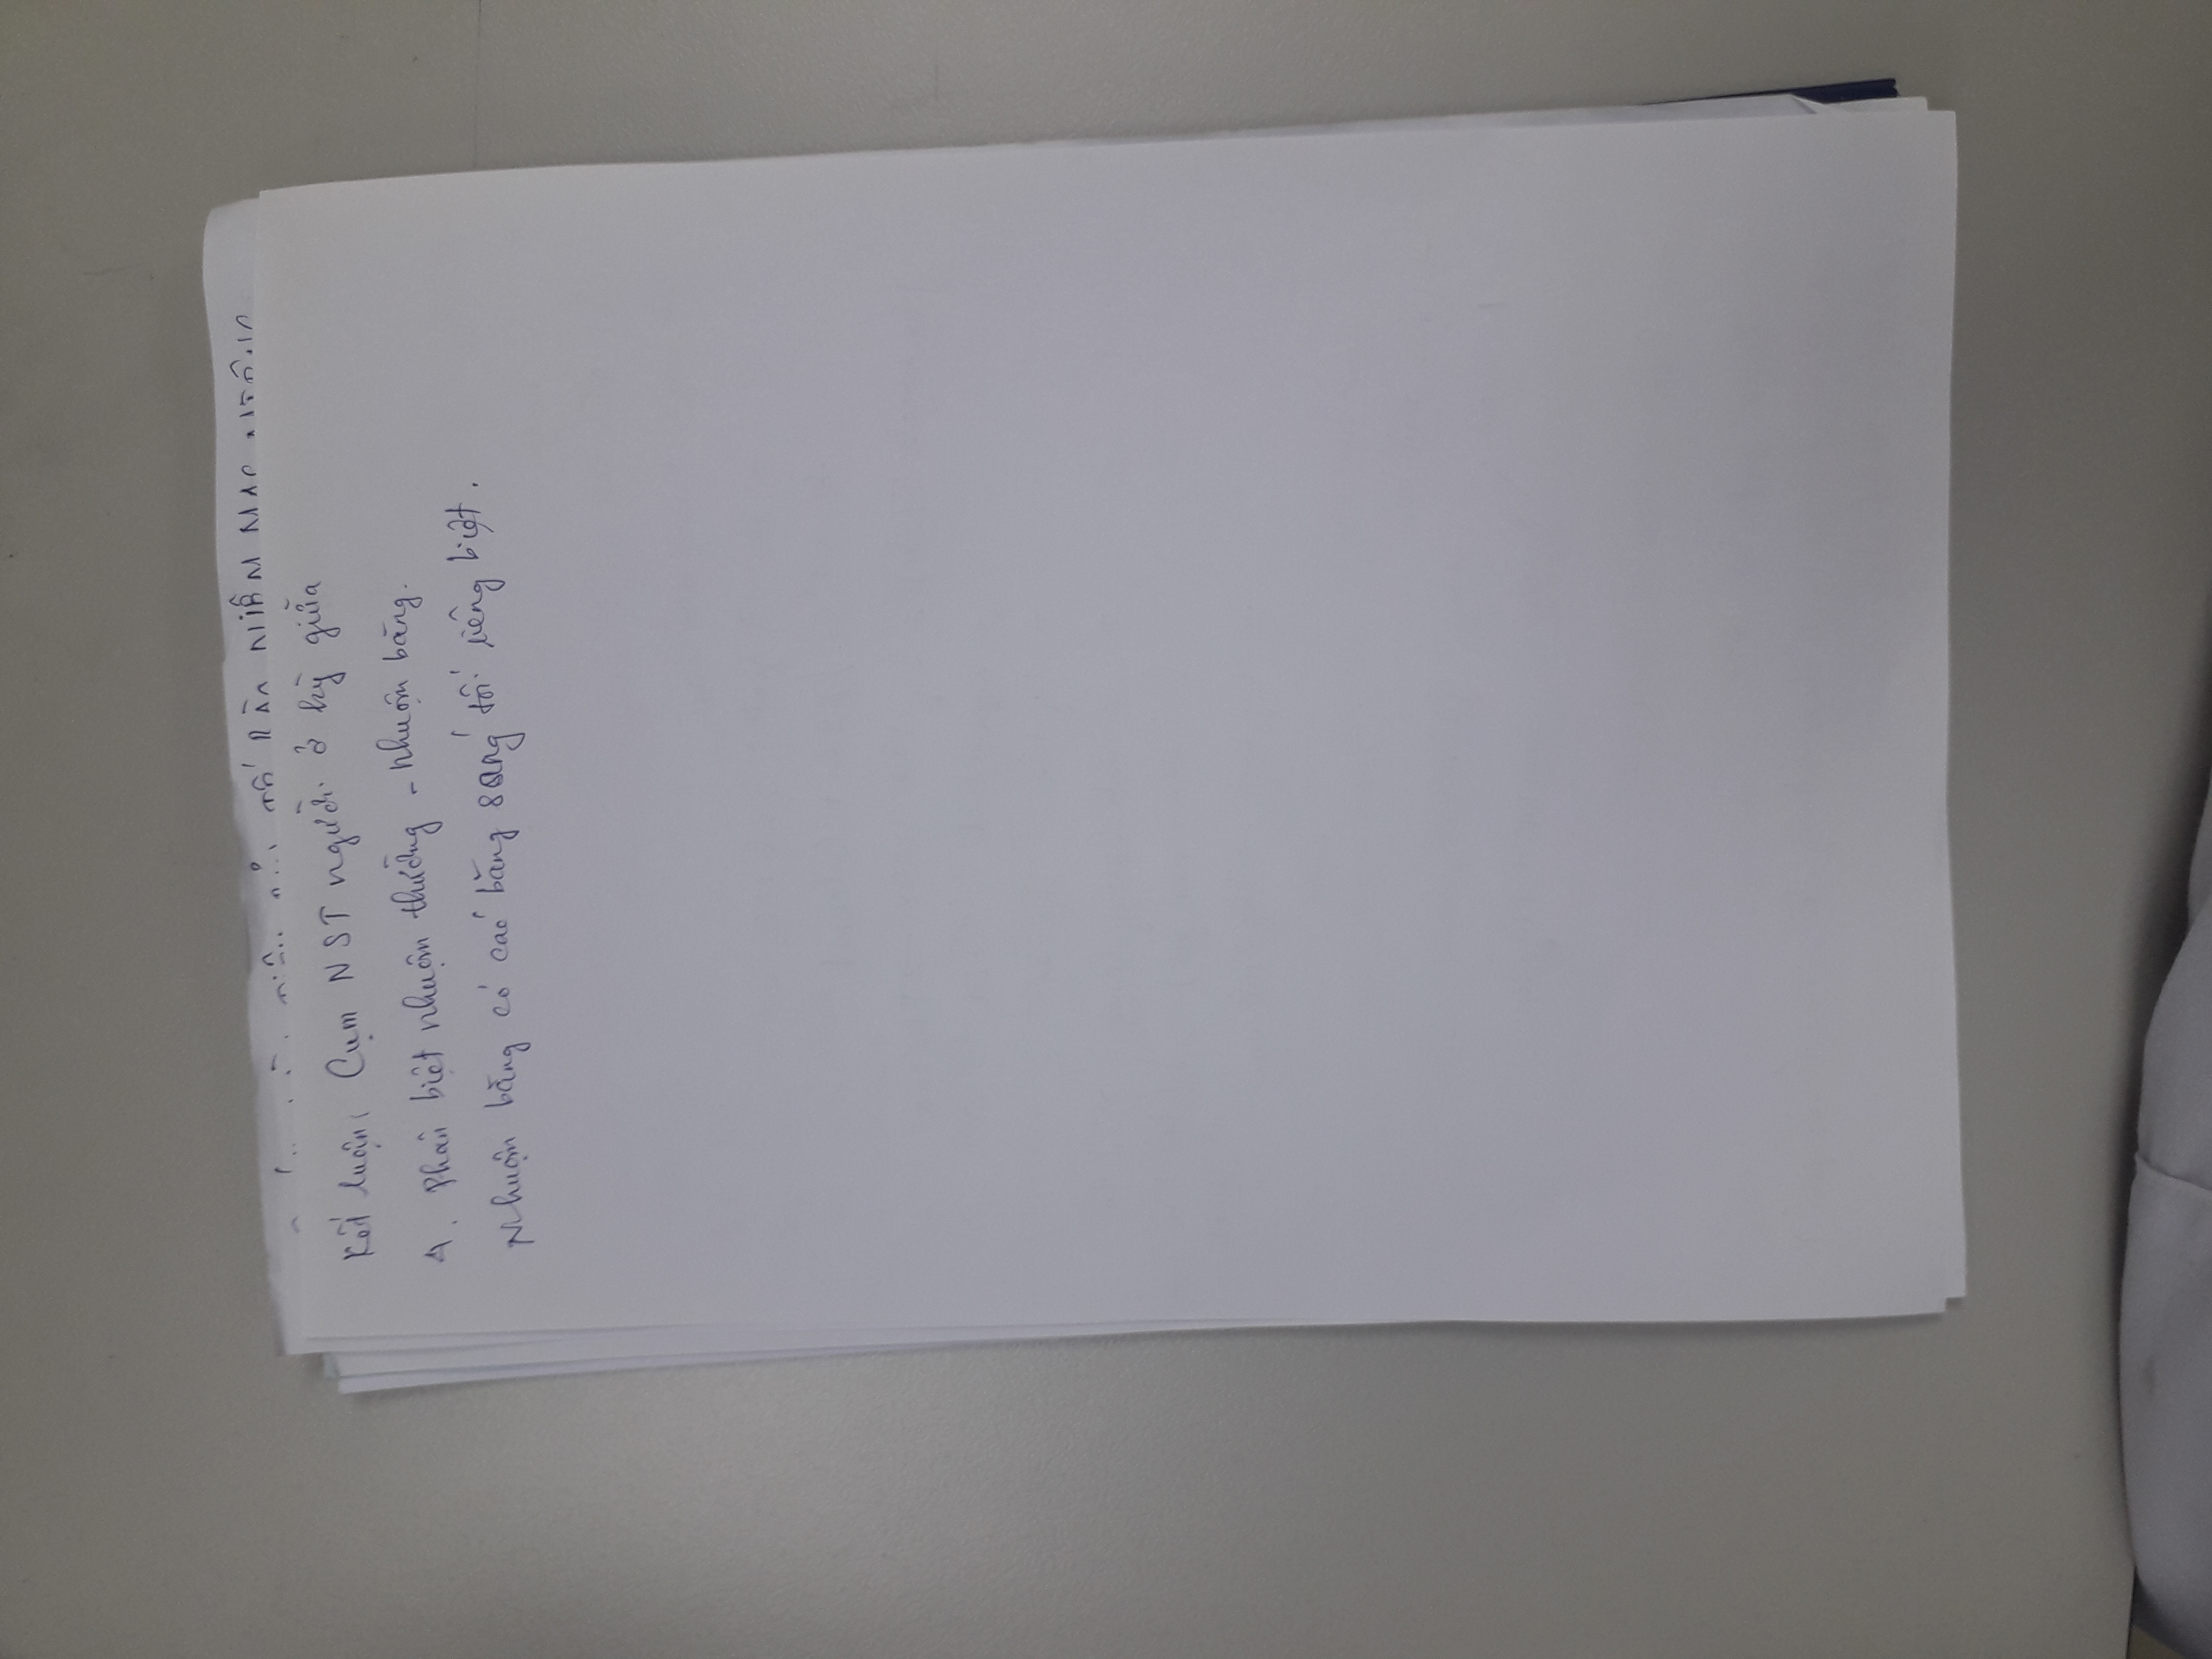 TẾ BÀO NIÊM MẠC
Kết luận: Cụm NST người ở kỳ giữa
4. Phân biệt nhuộm thường - nhuộm băng.
Nhuộm băng có các băng sáng tối riêng biệt.